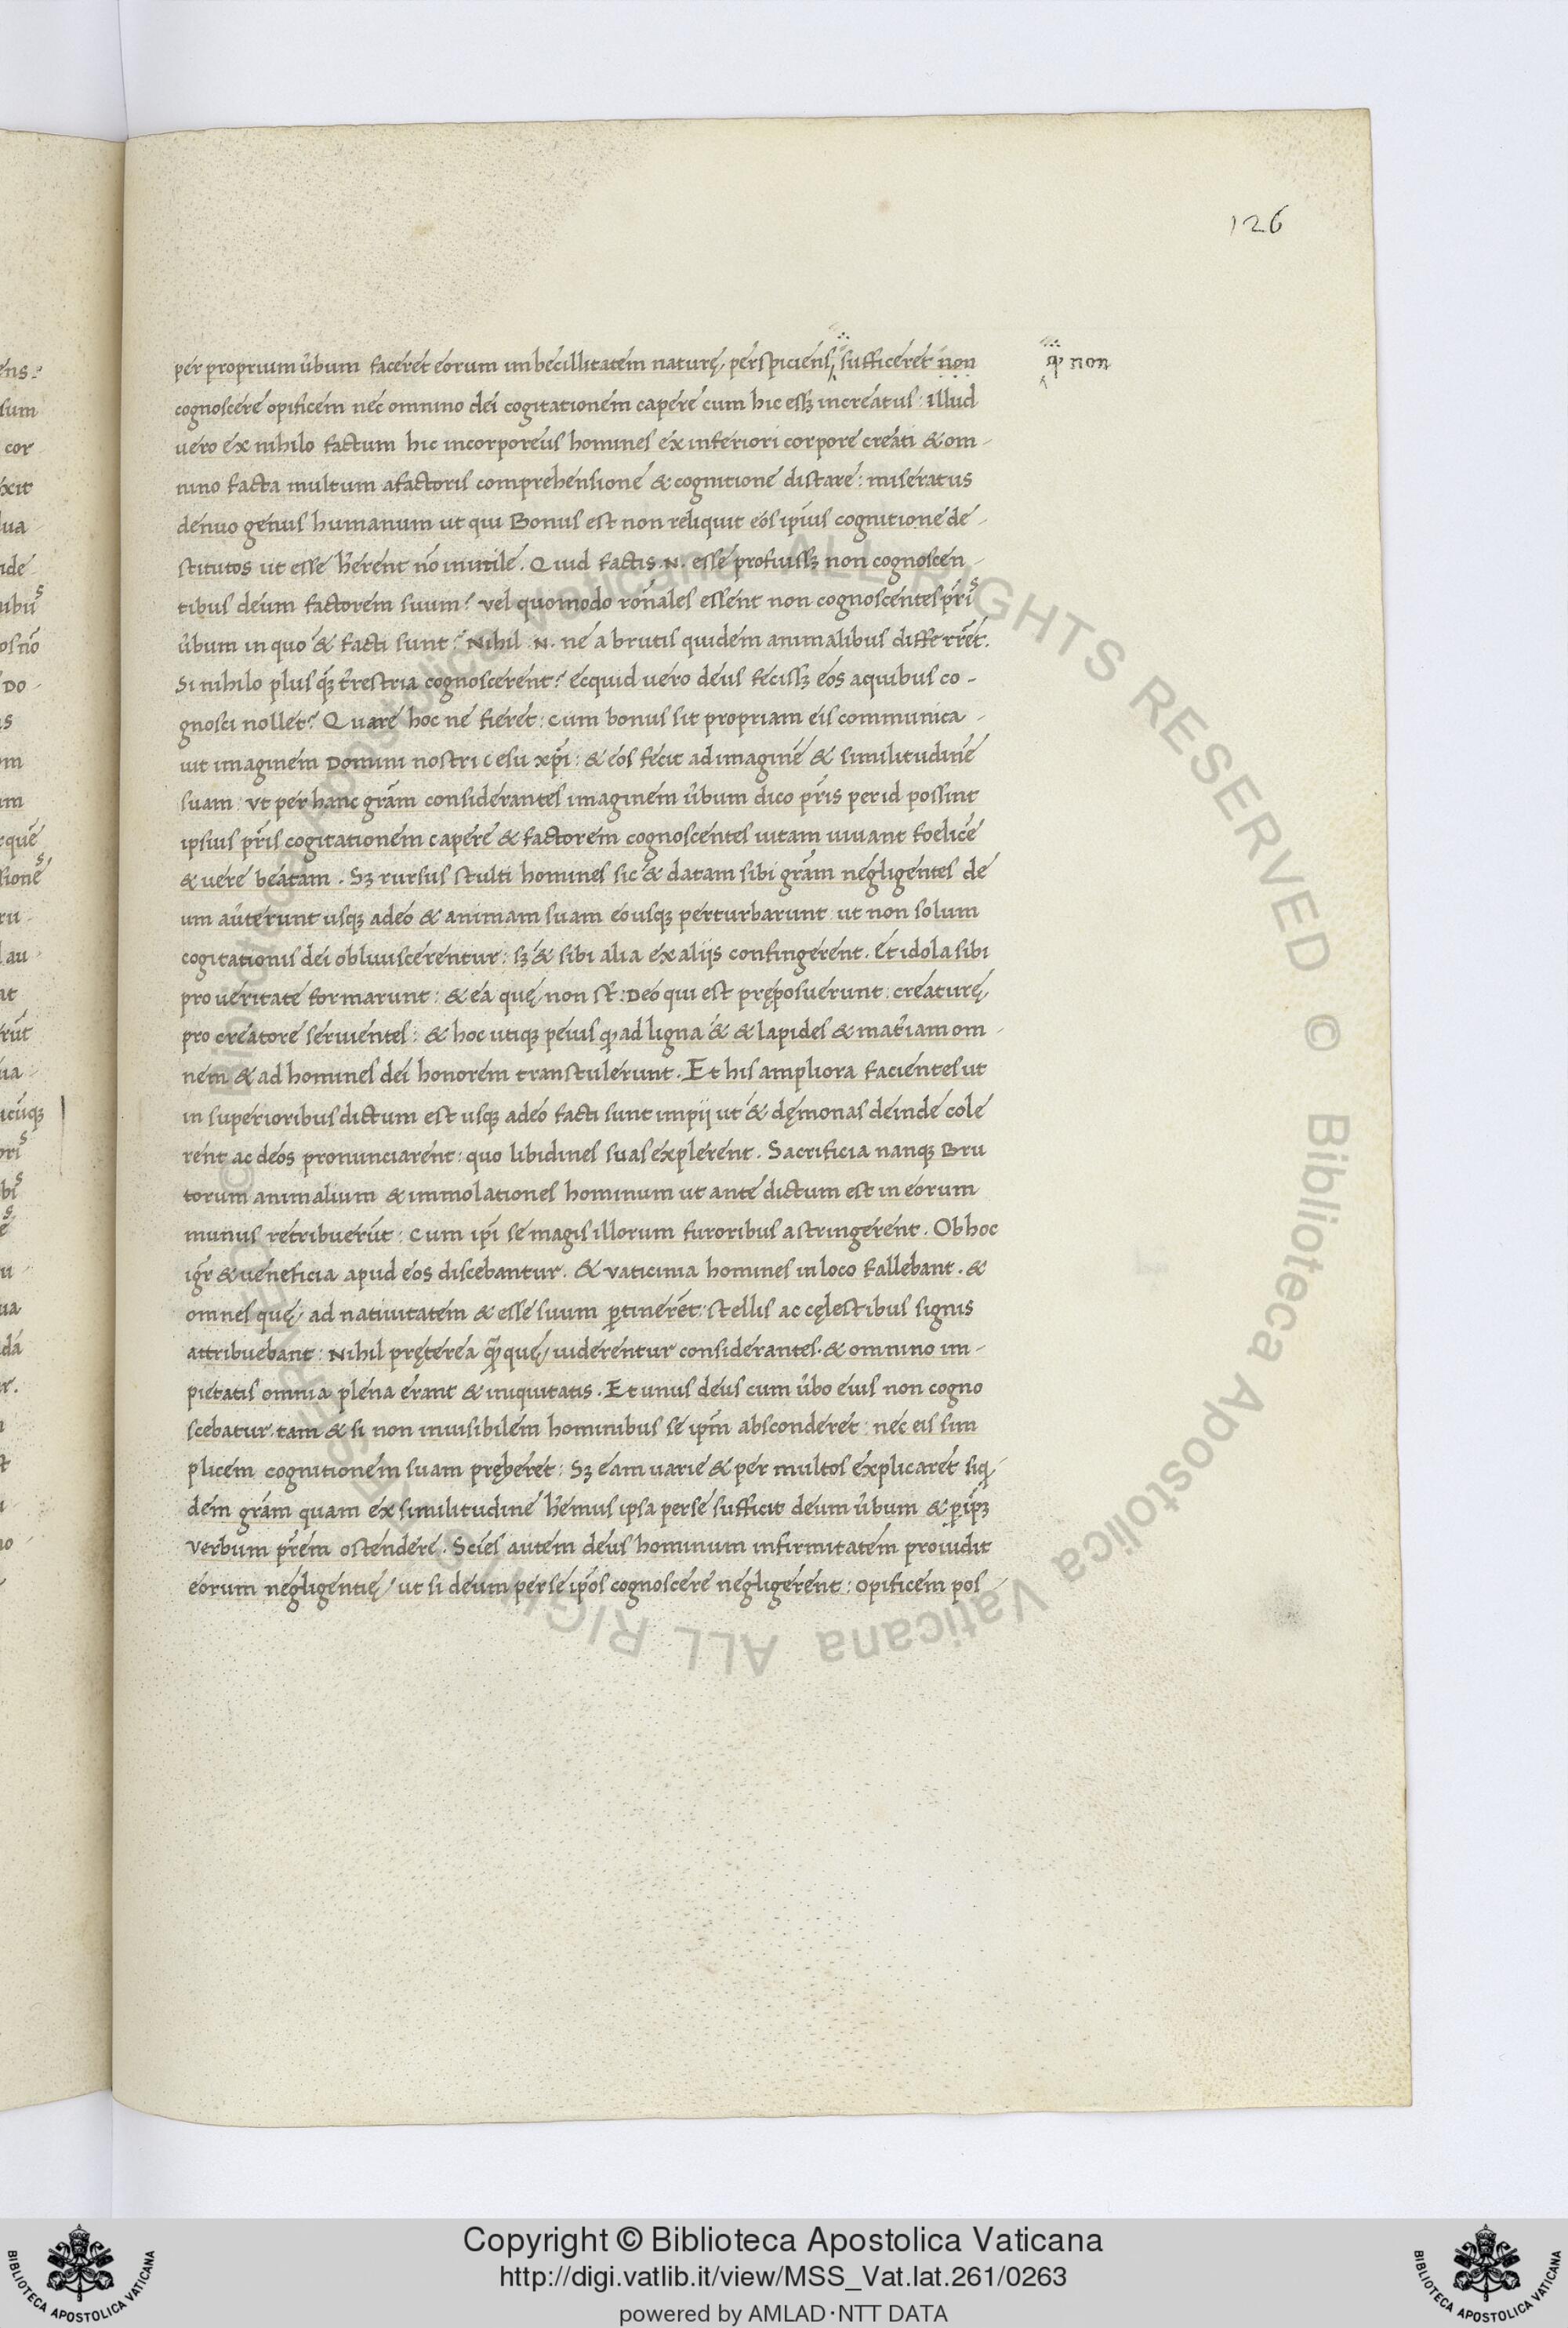 126
per proprium ủbum faceret eorum imbecillitatem naturę, perspiciens sufficeret non
qꝫ non
cognoscere opificem nec omnino dei cogitationem capere cum hic essꝫ increatus: illud
vero ex nihilo factum hic incorporeus homines ex inferiori corpore creati & om-
nino facta multum afactoris comprehensione & cognitione distare: miseratus
denuo genus humanum ut qui Bonus est non reliquit eos ip̃ius cognitione de-
stitutos ut esse h̃erent nõ inutile. Quid factis .N. esse profuissꝫ non cognoscen-
tibus deum factorem suum? vel quomodo rõnales essent non cognoscentes pr̃is
ủbum in quo & facti sunt? Nihil .N. ne a brutis quidem animalibus differrẽt.
Si nihilo plus qꝫ̃ t̉restria cognoscerent? ecquid uero deus fecissꝫ eos aquibus co-
gnosci nollet? Quare hoc ne fieret: cum bonus sit propriam eis communica-
uit imaginem Domini nostri iesu xp̃i: & eos fecit ad imaginẽ & similitudinẽ
suam: Vt per hanc gr̃am considerantes imaginem ủbum dico pr̃is per id possint
ipsius pr̃is cogitationem capere & factorem cognoscentes uitam uiuant foelicẽ
& uere beatam. Sꝫ rursus stulti homines sic & datam sibi gr̃am negligentes de
um aủterunt usqꝫ adeo & animam suam eousqꝫ perturbarunt ut non solum
cogitationis dei obliuiscerentur: sꝫ & sibi alia ex aliis confingerent. Et idola sibi
pro ueritate formarunt: & ea quę non st̃: Deo qui est pręposuerunt: creaturę
pro creatore seruientes: & hoc utiqꝫ peius qꝫ ad ligna & & lapides & mat̉iam om-
nem & ad homines dei honorem transtulerunt. Et his ampliora facientes ut
in superioribus dictum est usqꝫ adeo facti sunt impij ut & dęmonas deinde cole
rent ac deos pronunciarent: quo libidines suas explerent. Sacrificia nanqꝫ Bru
torum animalium & immolationes hominum ut ante dictum est in eorum
munus retribuerũt: Cum ip̃i se magis illorum furoribus astringerent. Ob hoc
igr̃ & ueneficia apud eos discebantur. & vaticinia homines in loco fallebant. &
omnes quę ad natiuitatem & esse suum ꝑtinerẽt: stellis ac cęlestibus signis
attribuebant: Nihil pręterea quę uiderentur considerantes. & omnino im-
pietatis omnia plena erant & iniquitatis. Et unus deus cum ủbo eius non cogno
scebatur. tam & si non inuisibilem hominibus se ip̃m absconderet: nec eis sim
plicem cognitionem suam pręberet: Sꝫ eam uarie & per multos explicaret siqi
dem gr̃am quam ex similitudine h̃emus ipsa per se sufficit deum ủbum & ꝑ ip̃ꝫ
verbum pr̃em ostendere. Scies autem deus hominum infirmitatem prouidit
eorum negligentię, ut si deum per se ip̃os cognoscere negligerent: opificem pos-
Copyright © Biblioteca Apostolica Vaticana
http://digi.vatlib.it/view/MSS_Vat.lat.261/0263
powered by AMLAD·NTT DATA